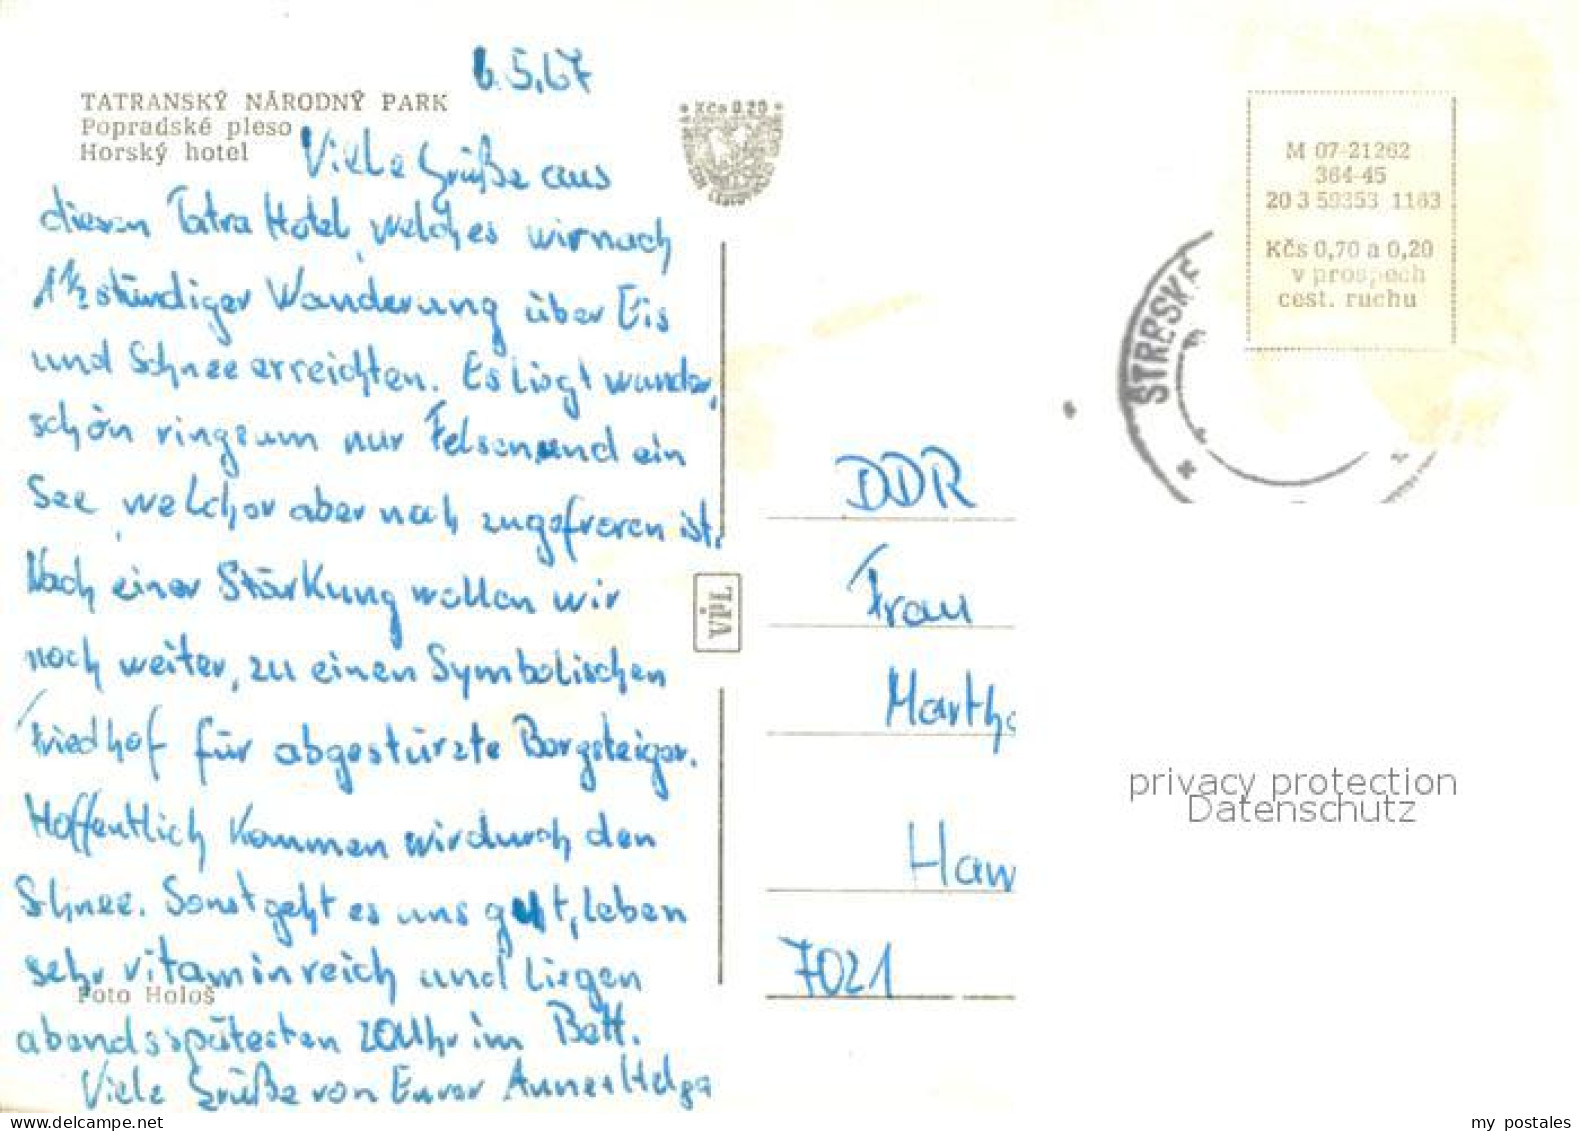 6.5.67
TATRANSKÝ NÁRODNÝ PARK
Popradské pleso
Horský hotel
Kčs 0,20
Viele Grüße aus
diesen Tatra Hotel, welches wir nach
1½ stündiger Wanderung über Eis
und Schnee erreichten. Es liegt wunder,
schön ringsum nur Felsen und ein
See, welcher aber noch zugefroren ist.
Nach einer Stärkung wollen wir
noch weiter, zu einen Symbolischen
Friedhof für abgestürzte Bergsteiger.
Hoffentlich kommen wir durch den
Schnee. Sonst geht es uns gut, leben
sehr vitaminreich und liegen
Foto Hološ
abends spätesten 20 Uhr im Bett.
Viele Grüße von Eurer Anne+Helga
VPL
M 07-21262
364-45
20 3 59353 1163
Kčs 0,70 a 0,20
v prospech
cest. ruchu
ŠTRBSKÉ
DDR
Frau
Martha
Haw
7021
privacy protection
Datenschutz
www.delcampe.net
my_postales